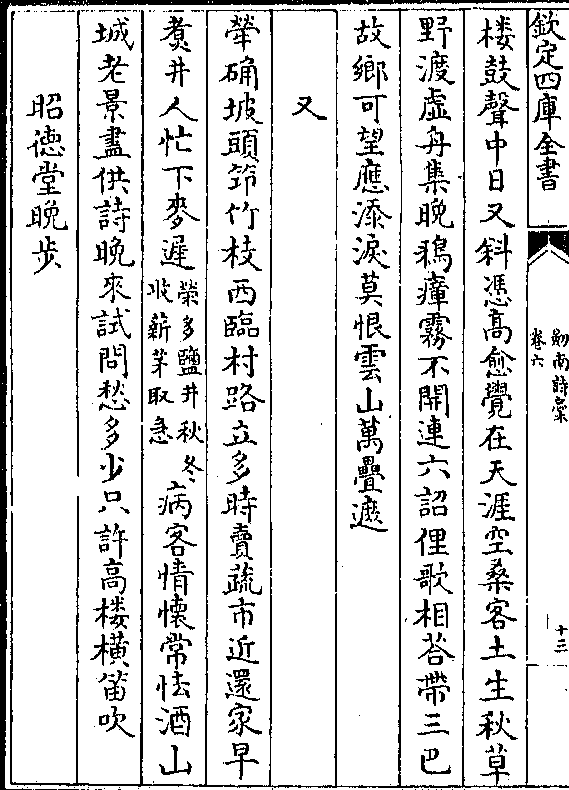 欽定四庫全書
劔南詩槀
卷六
十三
楼鼓聲中日又斜憑髙愈覺在天涯空桑客土生秋草
野渡虛舟集晚鴉瘴霧不開連六詔俚歌相荅帶三巴
故鄉可望應添淚莫恨雲山萬疊遮
又
犖确坡頭筇竹枝西臨村路立多時賣蔬市近還家早
煑井人忙下麥遲榮多鹽井秋冬
收薪茅取急病客情懷常怯酒山
城老景盡供詩晚來試問愁多少只許高楼橫笛吹
昭德堂晚步